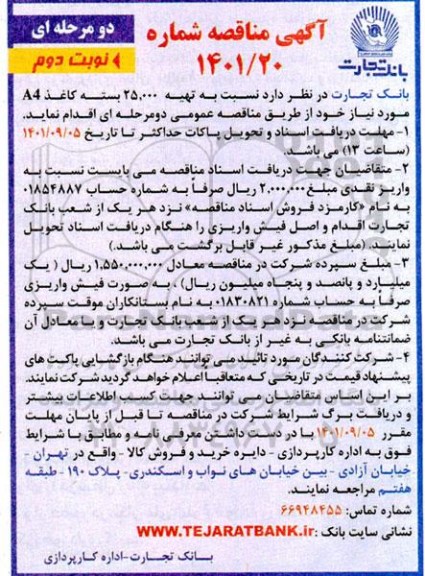 آگهی مناقصه شماره
۱۴۰۱/۲۰
دو مرحله ای
نوبت دوم
بانک تجارت
بانک تجارت در نظر دارد نسبت به تهیه ۲۵,۰۰۰ بسته کاغذ A4
مورد نیاز خود از طریق مناقصه عمومی دومرحله ای اقدام نماید.
۱- مهلت دریافت اسناد و تحویل پاکات حداکثر تا تاریخ ۱۴۰۱/۰۹/۰۵
(ساعت ۱۳) می باشد.
۲- متقاضیان جهت دریافت اسناد مناقصه می بایست نسبت به
واریز نقدی مبلغ ۲,۰۰۰,۰۰۰ ریال صرفاً به شماره حساب ۰۱۸۵۴۸۸۷
به نام «کارمزد فروش اسناد مناقصه» نزد هر یک از شعب بانک
تجارت اقدام و اصل فیش واریزی را هنگام دریافت اسناد تحویل
نمایند. (مبلغ مذکور غیر قابل برگشت می باشد.)
۳- مبلغ سپرده شرکت در مناقصه معادل ۱,۵۵۰,۰۰۰,۰۰۰ ریال ( یک
میلیارد و پانصد و پنجاه میلیون ریال) ، به صورت فیش واریزی
صرفاً به حساب شماره ۰۱۸۳۰۸۲۱ به نام بستانکاران موقت سپرده
شرکت در مناقصه نزد هر یک از شعب بانک تجارت و یا معادل آن
ضمانتنامه بانکی به غیر از بانک تجارت می باشد.
۴- شرکت کنندگان مورد تائید می توانند هنگام بازگشایی پاکت های
پیشنهاد قیمت در تاریخی که متعاقباً اعلام خواهد گردید شرکت نمایند.
بر این اساس متقاضیان می توانند جهت کسب اطلاعات بیشتر
و دریافت برگ شرایط شرکت در مناقصه تا قبل از پایان مهلت
مقرر ۱۴۰۱/۰۹/۰۵ با در دست داشتن معرفی نامه و مطابق با شرایط
فوق به اداره کارپردازی - دایره خرید و فروش کالا - واقع در تهران -
خیابان آزادی - بین خیابان های نواب و اسکندری- پلاک ۱۹۰ - طبقه
هفتم مراجعه نمایند.
شماره تماس: ۶۶۹۴۸۴۵۵
نشانی سایت بانک : WWW.TEJARATBANK.ir
بانک تجارت-اداره کارپردازی